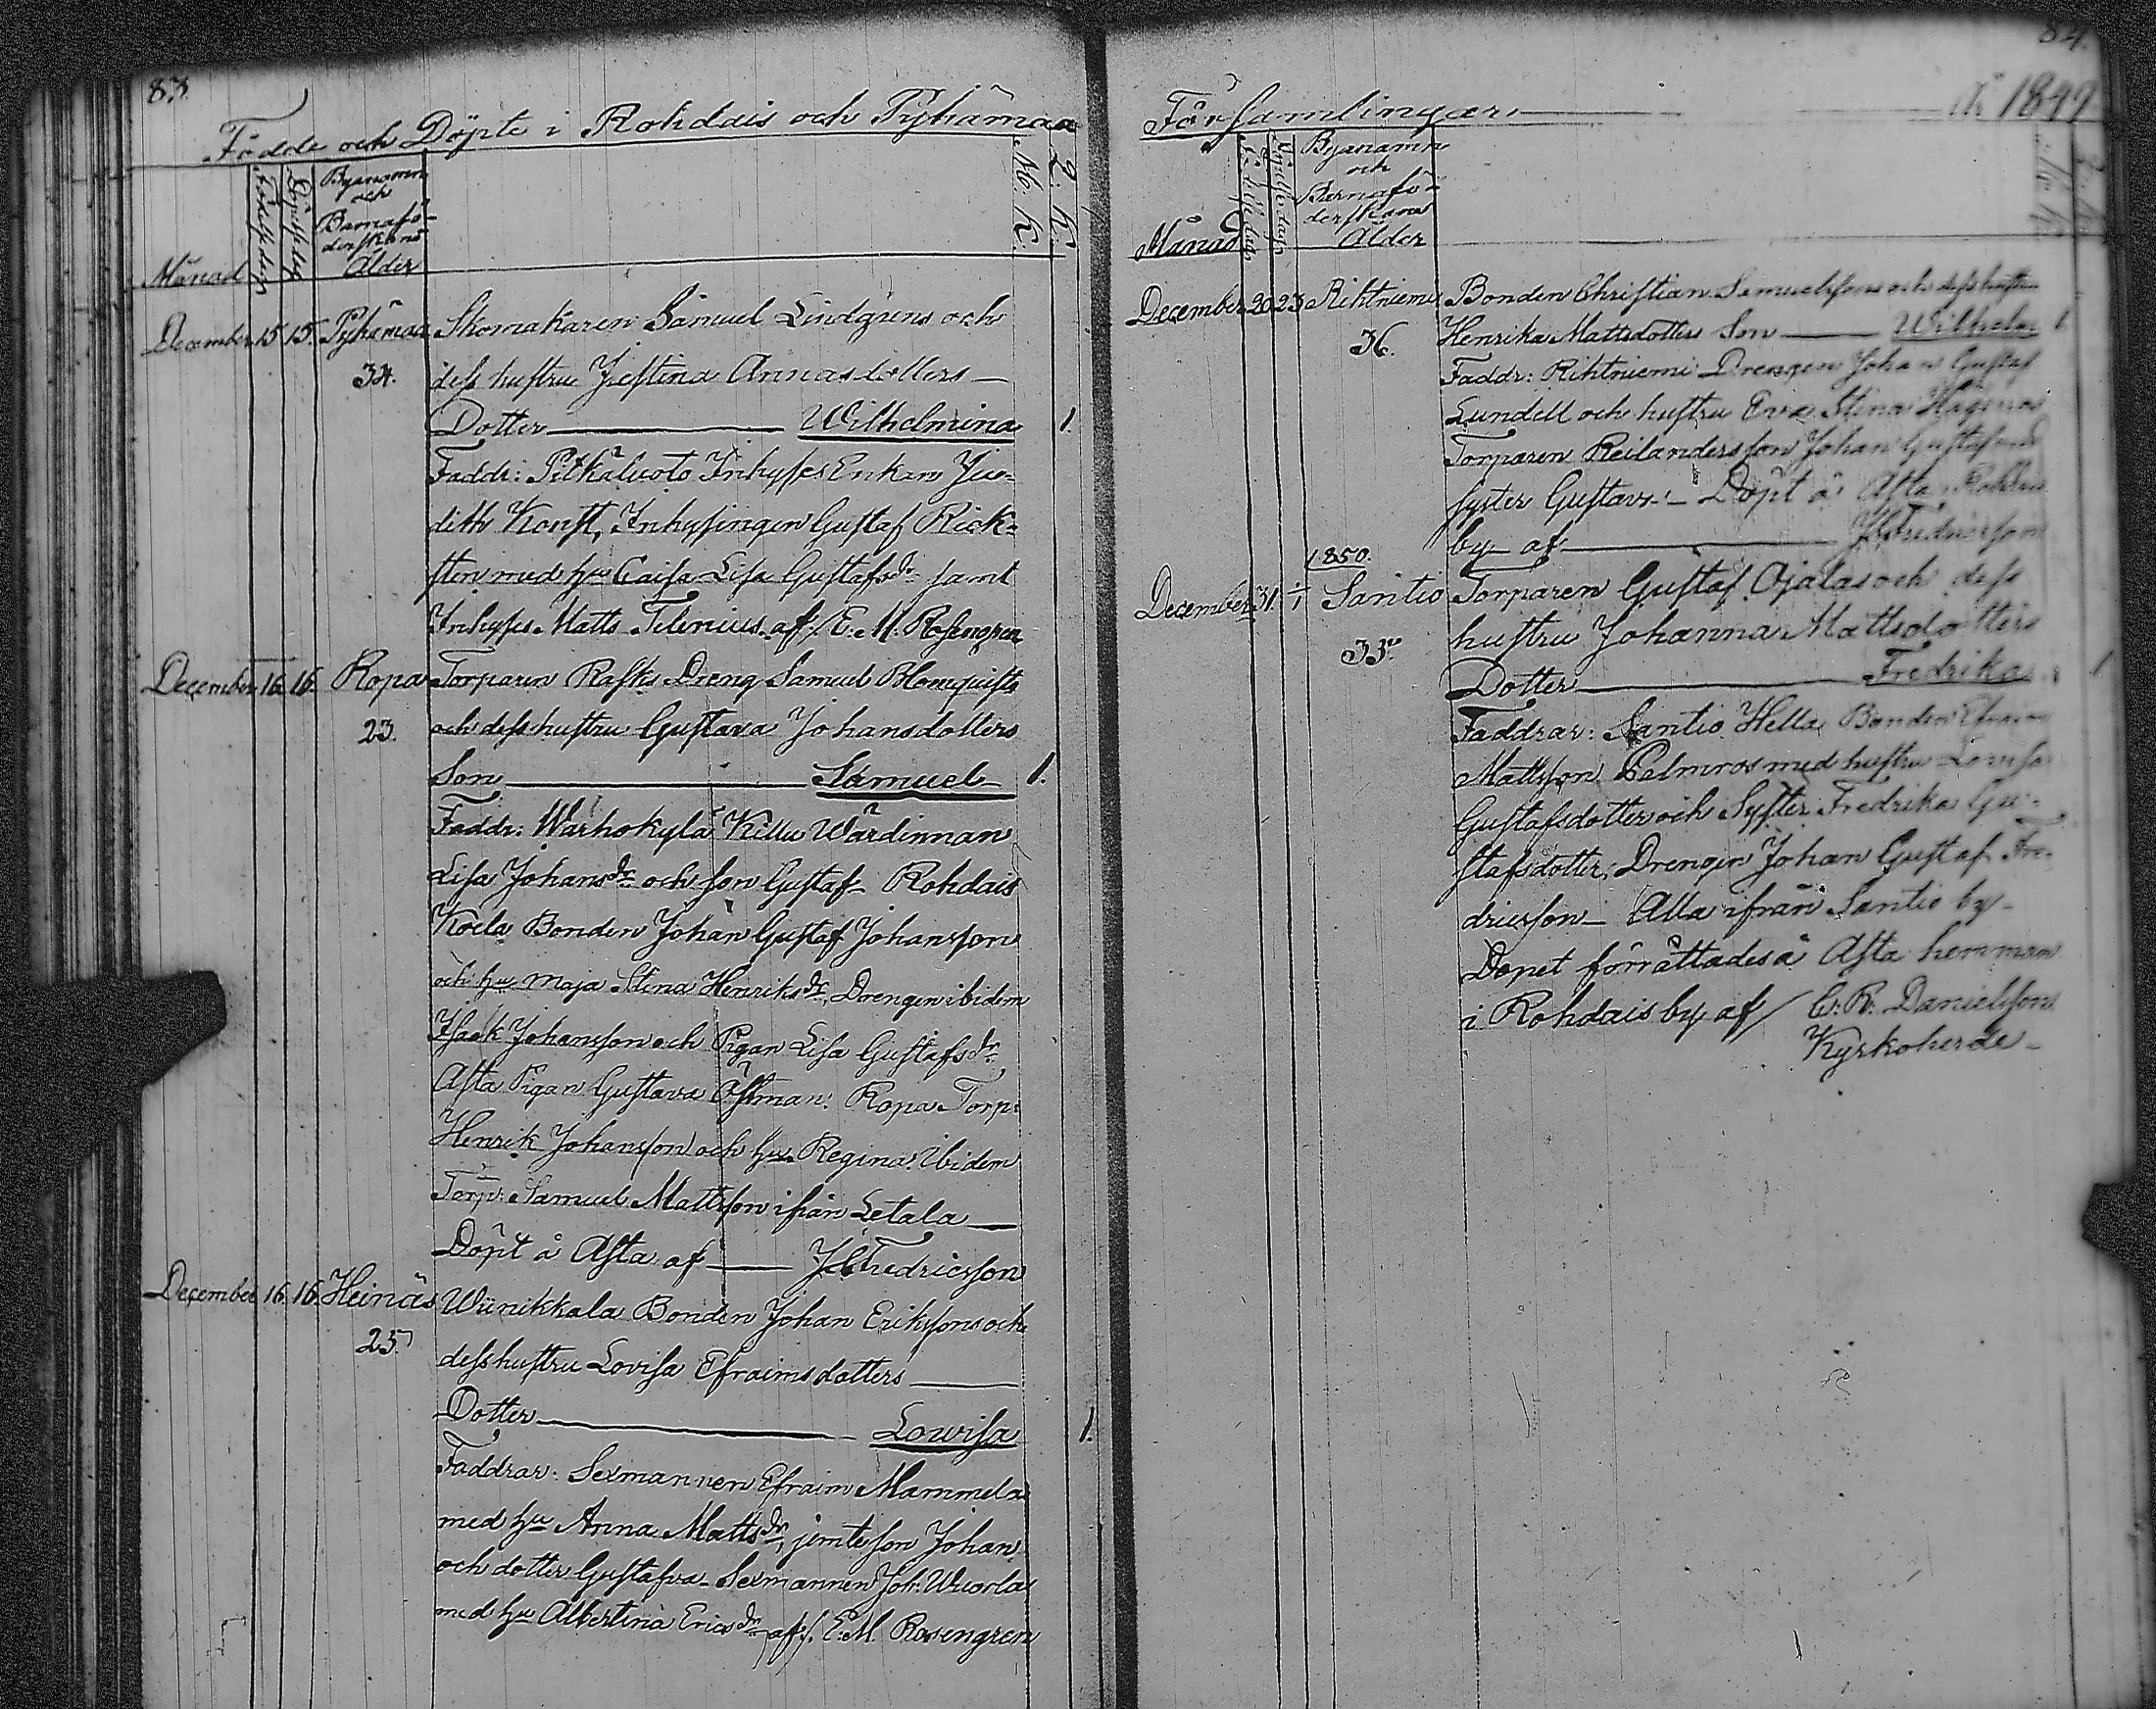 83.
Födde och Döpte i Rohdais och Pyhämaa
Månad
Födelsedag
Döpelsedag
Byanamn
och
Barnafö-
derskans
Ålder
M. K.
Q. K.
December 15 15. Pyhämaa Skomakaren Samuel Lindgrens och
34. dess hustru Justina Annasdotters —
Dotter — Wilhelmina 1.
Faddr: Pitkäluoto Inhyses Enkan Ju-
dith Konst, Inhysingen Gustaf Rick-
sten med hu Caisa Lisa Gustafsdr samt
Inhyses Matts Telenius. af /. E. M. Rosengren
December 16 16. Ropa Torparen Rasks Dreng Samuel Blomquists
23. och dess hustru Gustava Johansdotters
Son — Samuel 1.
Faddr: Warhokylä Killu Wärdinnan
Lisa Johansdr och son Gustaf. Rohdais
Koela Bonden Johan Gustaf Johansson
och hu Maja Stina Henriksdr, Drengen ibidem
Isaak Johansson och Pigan Lisa Gustafsdr
Asta Pigan Gustava Östman. Ropa Torp:
Henrik Johansson och hu Regina. Ibidem
Torp: Samuel Mattsson ifrån Letala —
Döpt å Asta af — J. Fredricsson
December 16. 16. Heinäs Wünikkala Bonden Johan Erikssons och
25. dess hustru Lovisa Efraimsdotters —
Dotter — Lowisa 1.
Faddrar: Sexmannen Efraim Mammela
med hu Anna Mattsdr, jemte son Johan
och dotter Gustafva. Sexmannen Joh. Wuorla
med hu Albertina Ericsdr af /. E. M. Rosengren
84.
Församlingar — År 1849
Månad
Födelsedag
Döpelsedag
Byanamn
och
Barnafö-
derskans
Ålder
M. K.
Q. K.
December 20 23 Rihtniemi Bonden Christian Samuelssons och dess hustru
36. Henrika Mattsdotters Son — Wilhelm 1.
Faddr: Rihtniemi Drengen Johan Gustaf
Lundell och hustru Eva Stina
Torparen Reilanders son Johan Gustaf och
syster Gustava. — Döpt å Asta Rohdais
by af — J. Fredricsson
1850.
December 31. 1/1 Santio Torparen Gustaf Ojalas och dess
33. hustru Johanna Mattsdotters
Dotter — Fredrika 1
Faddrar: Santio Hella Bonden Efraim
Mattsson Palmros med hustru Lovisa
Gustafsdotter och Syster Fredrika Gu-
stafsdotter, Drengen Johan Gustaf Fre-
dricsson — Alla ifrån Santio by —
Dopet förrättades å Asta hemman
i Rohdais by af / C. R. Danielsson
Kyrkoherde —